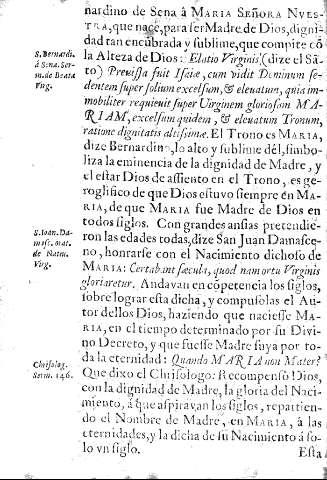 nardino de Sena à MARIA SEÑORA NVES-
TRA, que nace, para ser Madre de Dios, digni-
dad tan encũbrada y sublime, que compite cõ
la Alteza de Dios: Elatio Virginis (dize el Sã-
to) Prævissa fuit Isaiæ, cum vidit Dominum se-
dentem super solium excelsum, & elevatum, quia im-
mobiliter requievit super Virginem gloriosam MA-
RIAM, excelsum quidem, & elevatum Tronum,
ratione dignitatis altissimæ. El Trono es MARIA,
dize Bernardino, lo alto y sublime dél, simbo-
liza la eminencia de la dignidad de Madre, y
el estar Dios de assiento en el Trono, es ge-
roglifico de que Dios estuvo siempre én MA-
RIA, de que MARIA fue Madre de Dios en
todos siglos. Con grandes ansias pretendié-
ron las edades todas, dize San Juan Damasce-
no, honrarse con el Nacimiento dichoso de
MARIA: Certabant sæcula, quod nam ortu Virginis
gloriaretur. Andavan en cõpetencia los siglos,
sobre lograr esta dicha, y compusolas el Au-
tor dellos Dios, haziendo que naciesse MA-
RIA, en el tiempo determinado por su Divi-
no Decreto, y que fuesse Madre suya por to-
da la eternidad: Quando MARIA non Mater?
Que dixo el Chrisologo: Recompensò Dios,
con la dignidad de Madre, la gloria del Naci-
miento, á que aspiravan los siglos, repartien-
do el Nombre de Madre, en MARIA, à las
eternidades, y la dicha de su Nacimiento á so-
lo vn siglo.
Esta
S. Bernardi.
à Sena. Ser-
m. de Beata
Virg.
S. Ioan. Da-
masc. orat.
de Nativ.
Virg.
Chrisolog.
Serm. 146.